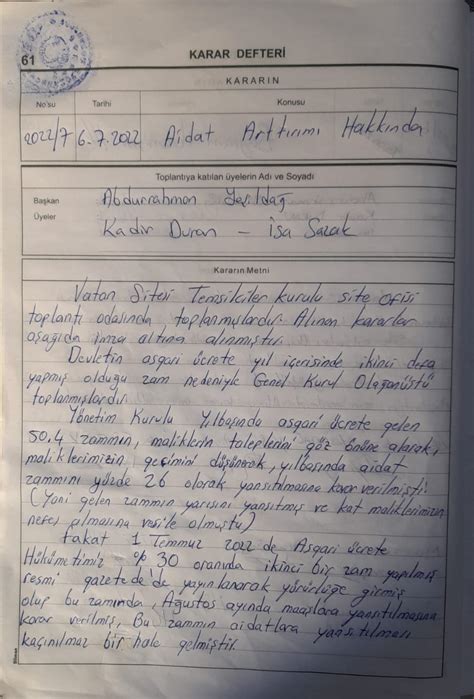 61
KARAR DEFTERİ
KARARIN
No'su Tarihi Konusu
2022/7 6.7.2022 Aidat Arttırımı Hakkında
Toplantıya katılan üyelerin Adı ve Soyadı
Başkan Abdurrahman Yeşildağ
Üyeler Kadir Duran - İsa Sazak
Kararın Metni
Vatan Sitesi Temsilciler Kurulu site ofisi
toplantı odasında toplanmışlardır. Alınan kararlar
aşağıda imza altına alınmıştır.
Devletin asgari ücrete yıl içerisinde ikinci defa
yapmış olduğu zam nedeniyle Genel Kurul Olağanüstü
toplanmışlardır.
Yönetim Kurulu Yılbaşında asgari ücrete gelen
50.4 zammın, maliklerin taleplerini göz önüne alarak,
maliklerimizin geçimini düşünerek, yılbaşında aidat
zammını yüzde 26 olarak yansıtılmasına karar verilmişti
(Yani gelen zammın yarısını yansıtmış ve kat maliklerimizin
nefes almasına vesile olmuştu)
Fakat 1 Temmuz 2022 de Asgari ücrete
Hükümetimiz % 30 oranında ikinci bir zam yapılmış
resmi gazetede'de yayınlanarak yürürlüğe girmiş
olup bu zamında, Ağustos ayında maaşlara yansıtılmasına
karar verilmiş, Bu zammın aidatlara yansıtılması
kaçınılmaz bir hale gelmiştir.